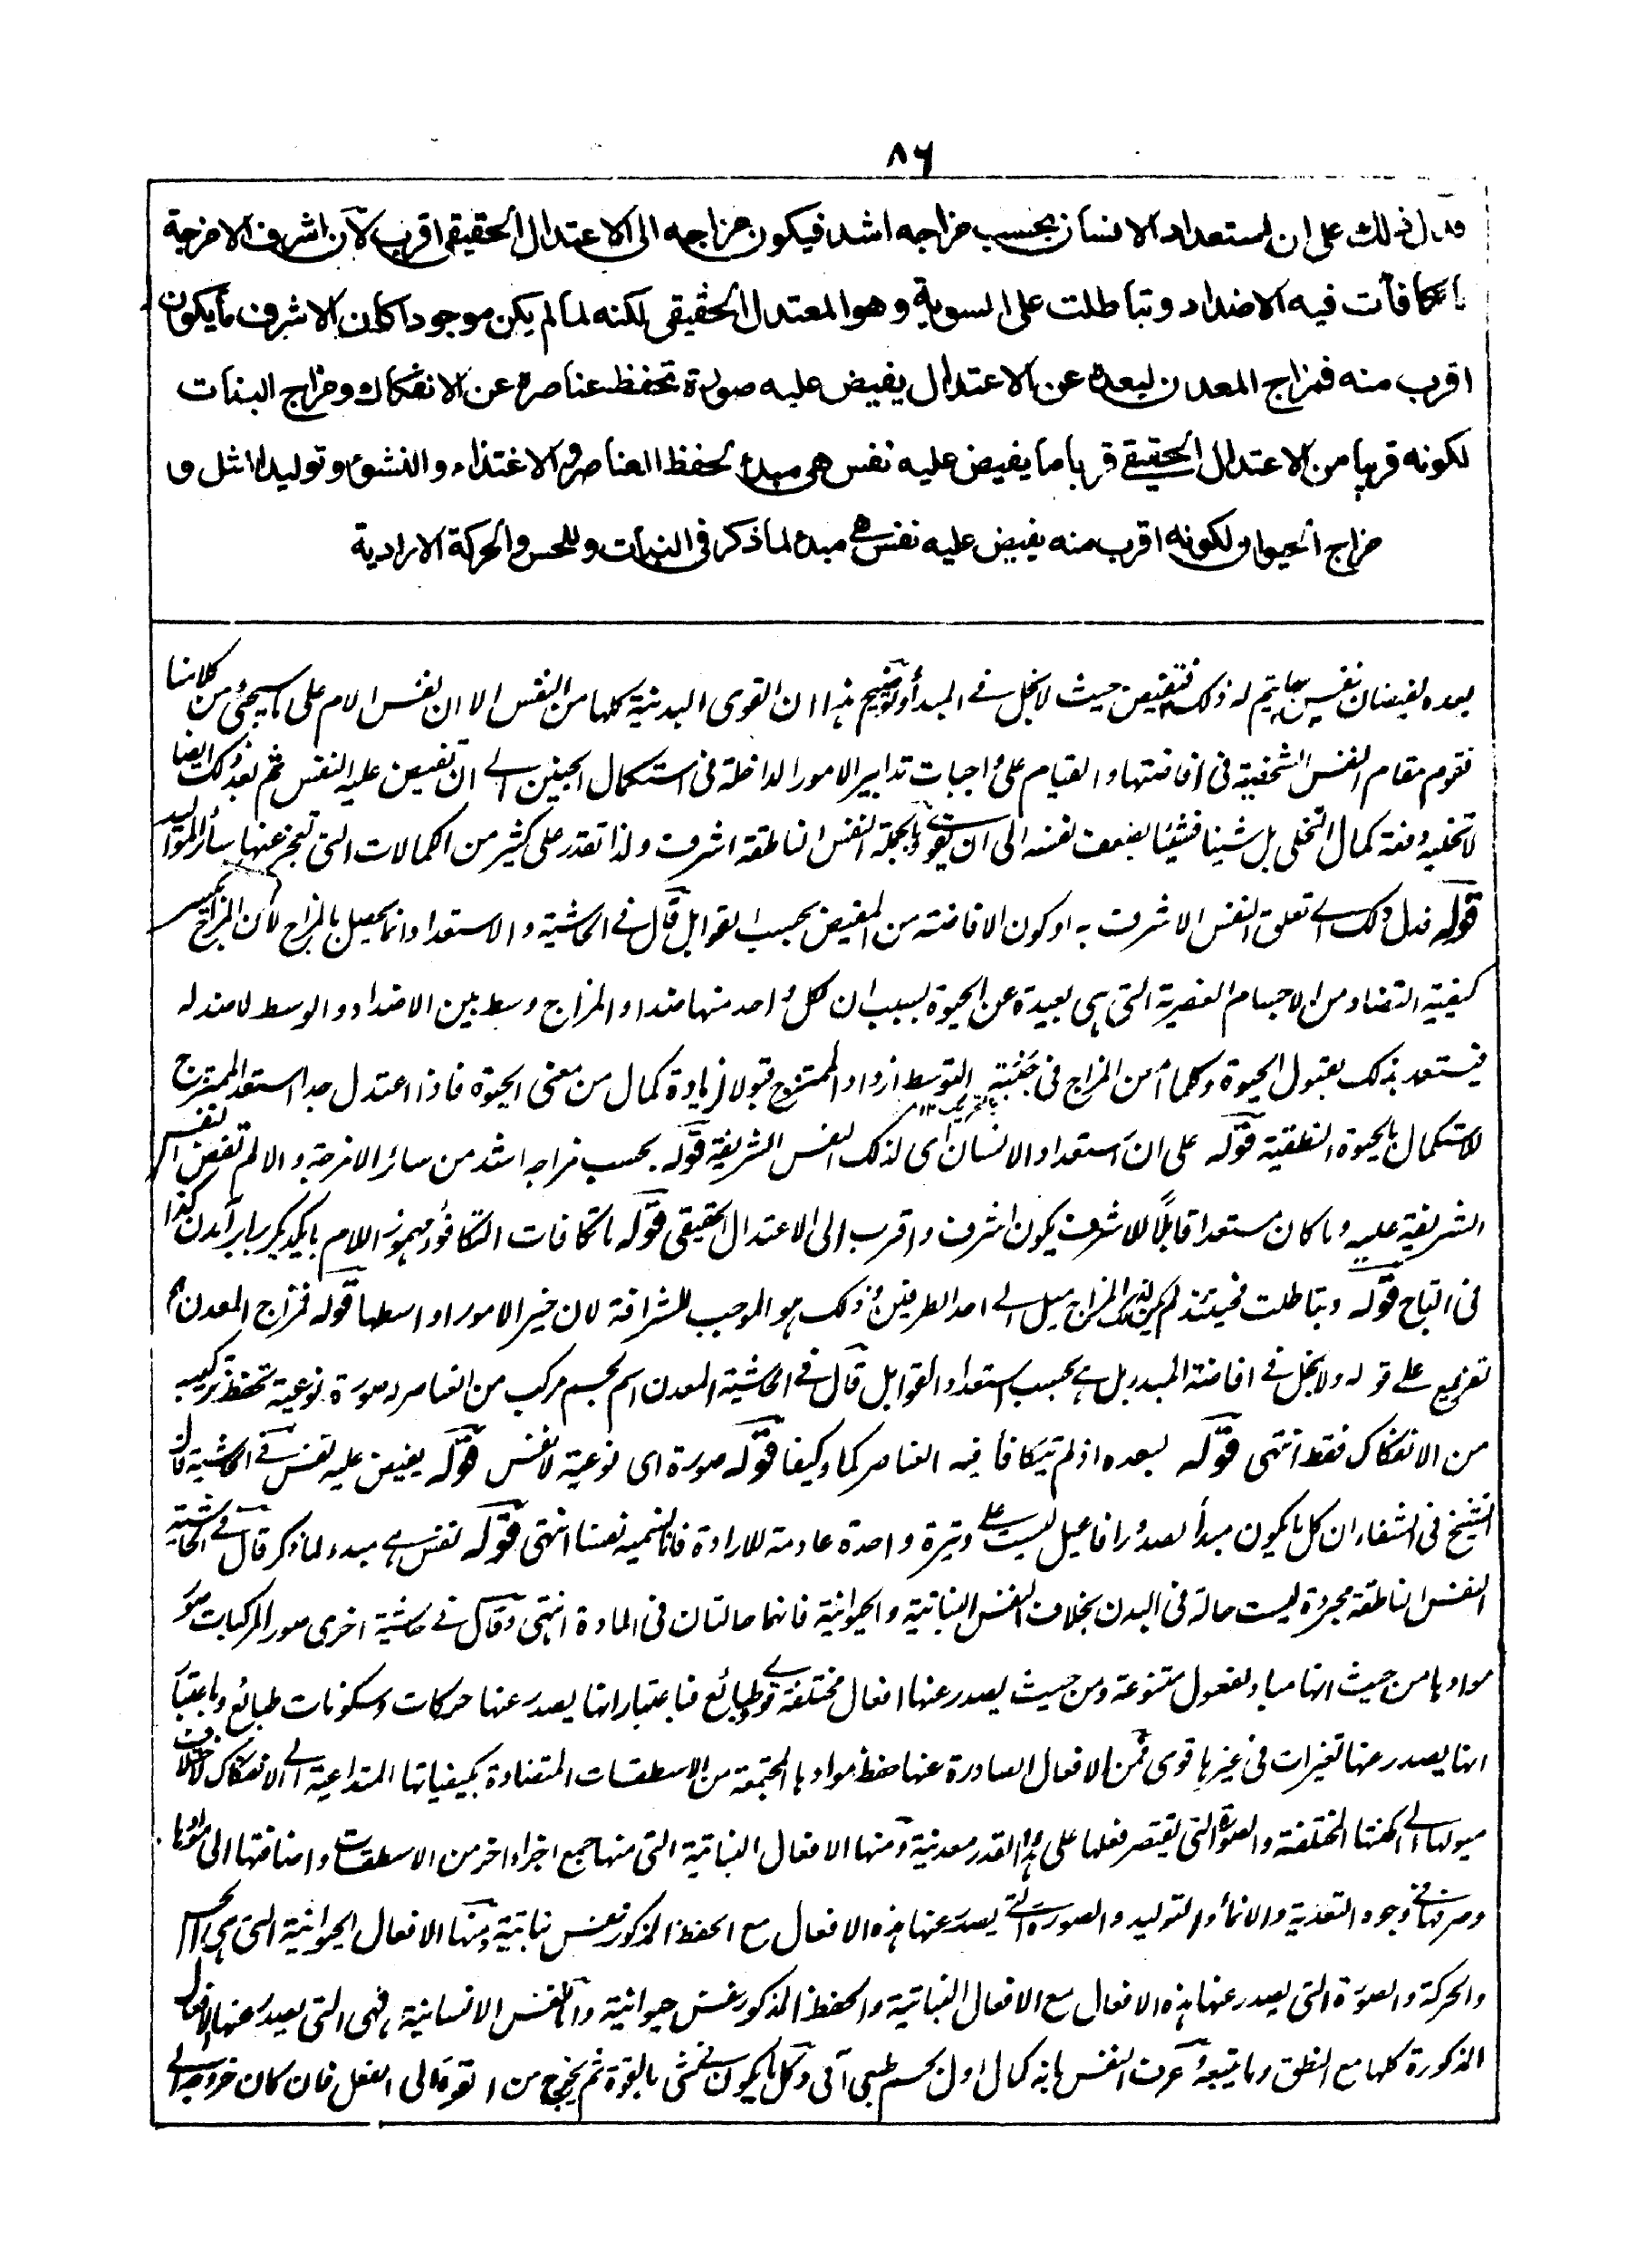 ٨٦
فدل ذلك على ان استعداد الانسان بحسب مزاجه اشد فيكون مزاجه الى الاعتدال الحقيقى اقرب لان اشرف الامزجة
ما تكافأت فيه الاضداد وتباطلت على السوية وهو المعتدل الحقيقى لكنه لما لم يكن موجودا كان الاشرف ما يكون
اقرب منه فمزاج المعدن لبعده عن الاعتدال يفيض عليه صورة تحفظ عناصره عن الانفكاك ومزاج النبات
لكونه قريبا من الاعتدال الحقيقے قربا ما يفيض عليه نفس هى مبدء لحفظ العناصر والاغتذاء والنشوء وتوليد المثل و
مزاج الحيوان لكونه اقرب منه يفيض عليه نفس هے مبدء لما ذكر فى النبات وللحس والحركة الارادية
بعده لفيضان نفس بها يتم له ذلك فتفيض حيث لا بخل فے المبدأ وتوضيح هذا ان القوى البدنية كلها من النفس الا ان نفس الام على ما سيجئ من كلامنا
تقوم مقام النفس الشخصية فى افاضتها والقيام على واجبات تدابير الامور الداخلة فى استكمال الجنين الے ان تفيض عليه النفس ثم بعد ذلك ايضا
لا تخليه دفعة كمال التخلى بل شيئا فشيئا بضعف نفسه الى ان يقوے وبالجملة النفس الناطقة اشرف ولذا تقدر على كثير من الكمالات التى تعجز عنها سائر المواليد
قوله فدل ذلك اے تعلق النفس الاشرف به او كون الافاضة من المفيض بحسب القوابل قال فے الحاشية والاستعداد انما يحصل بالمزاج لان المزاج يكسر
كيفية التضاد من الاجسام العنصرية التى هى بعيدة عن الحيوة بسبب ان كل واحد منها ضد والمزاج وسط بين الاضداد والوسط لا ضد له
فيستعد بذلك لقبول الحيوة وكلما أمعن المزاج فى جَنْبَة التوسط ازداد الممتزج قبولا لزيادة كمال من معنى الحيوة فاذا اعتدل جدا استعد الممتزج
للاستكمال بالحيوة النطقية قوله على ان استعداد الانسان اى لذلك النفس الشريفة قوله بحسب مزاجه اشد من سائر الامزجة والا لم تفض النفس
الشريفة عليه وما كان مستعدا قابلًا للاشرف يكون اشرف واقرب الى الاعتدال الحقيقى قوله ما تكافأت التكافؤ مهموز اللام بايكديگر برابر آمدن كذا
فى التاج قوله وتباطلت فحينئذ لم يكن لذلك المزاج ميل الے احد الطرفين وذلك هو الموجب للشرافة لان خير الامور اوسطها قوله فمزاج المعدن
تفريع علے قوله ولا بخل فے افاضة المبدء بل هے بحسب استعداد القوابل قال فے الحاشية المعدن اسم لجسم مركب من العناصر وصورة نوعية تحفظ تركيبه
من الانفكاك فقط انتهى قوله لبعده اذ لم يتكافأ فيه العناصر كما وكيفا قوله صورة اى نوعية لا نفس قوله يفيض عليه نفس فے الحاشية قال
الشيخ فى الشفاء ان كل ما يكون مبدأ لصدور افاعيل ليست علے وتيرة واحدة عادمة للارادة فانا نسميه نفسا انتهى قوله نفس هے مبدء لما ذكر قال فے الحاشية
النفس الناطقة مجردة ليست حالة فى البدن بخلاف النفس النباتية والحيوانية فانهما حالتان فى المادة انتهى وقال فے حاشية اخرى صور المركبات صور
موادها من حيث انها مباد لفعول متنوعة ومن حيث يصدر عنها افعال مختلفة قوے وطبائع فباعتبار انها يصدر عنها حركات وسكونات طبائع وباعتبار
انها يصدر عنها تغيرات فى غيرها قوى فمن الافعال الصادرة عنها حفظ موادها المجتمعة من الاسطقسات المتضادة بكيفياتها المتداعية الے الانفكاك لاختلاف
ميولها الے امكنتها المختلفة والصورة التى يقتصر فعلها على هذا القدر معدنية ومنها الافعال النباتية التى منها جمع اجزاء اخر من الاسطقسات واضافتها الى موادها
وصرفها فے وجوه التغذية والانماء والتوليد والصورة التے يصدر عنها هذه الافعال مع الحفظ المذكور نفس نباتية ومنها الافعال الحيوانية التى هى الحس
والحركة والصورة التى يصدر عنها هذه الافعال مع الافعال النباتية والحفظ المذكور نفس حيوانية واما النفس الانسانية فهى التى يصدر عنها الافعال
المذكورة كلها مع النطق وما يتبعه وعرف النفس بانه كمال اول لجسم طبعى آلى وكل ما يكون فے شئ بالقوة ثم يخرج من القوة الى الفعل فان كان خروجه الے